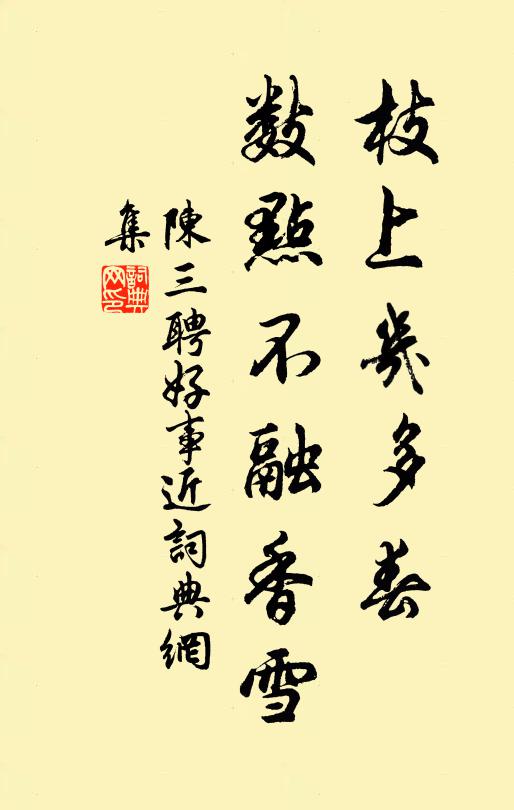 枝上幾多春
數點不融香雪
陳三聘好事近詞典網
集
詞典網印